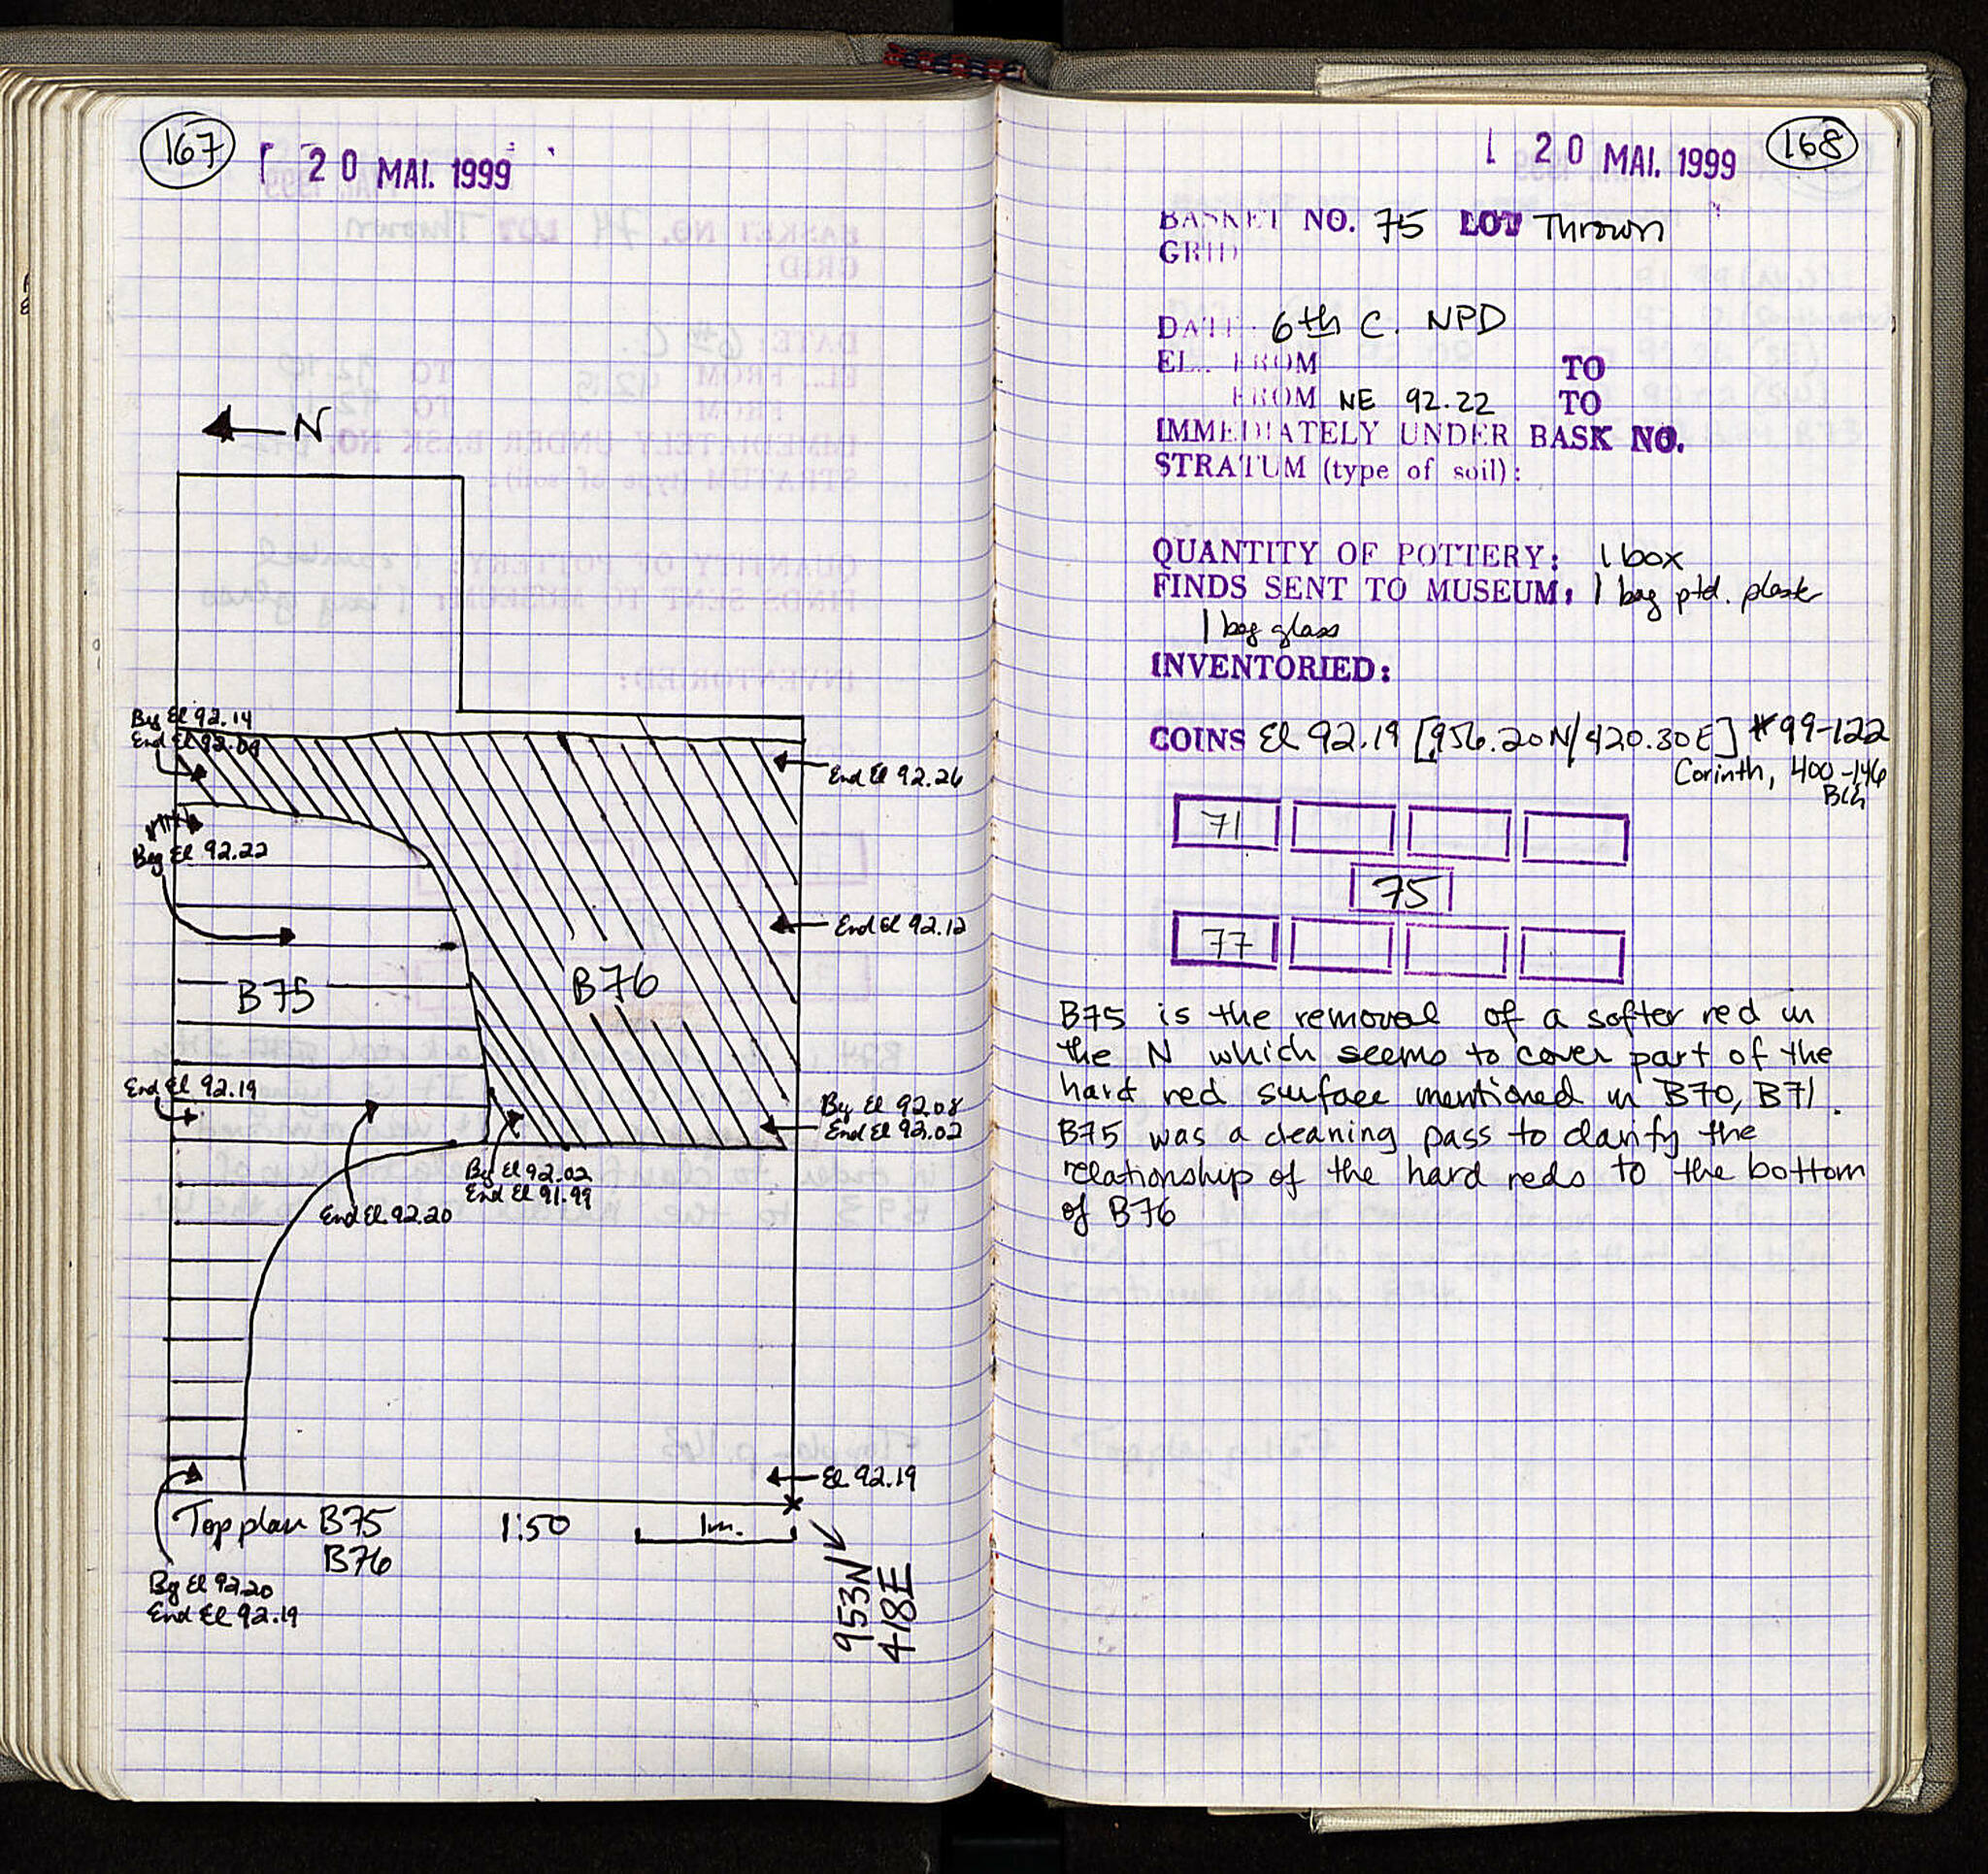 167
20 MAI. 1999
N
Beg El 92.14
End El 92.09
End El 92.26
Beg El 92.22
End El 92.12
B75
B76
End El 92.19
Beg El 92.08
End El 92.02
Beg El 92.02
End El 91.99
End El. 92.20
El 92.19
Top plan B75
B76
1:50
1m.
953N
418E
Beg El 92.20
End El 92.19
20 MAI. 1999
168
BASKET NO. 75 LOT Thrown
GRID
DATE: 6th C. NPD
EL. FROM TO
FROM NE 92.22 TO
IMMEDIATELY UNDER BASK NO.
STRATUM (type of soil):
QUANTITY OF POTTERY: 1 box
FINDS SENT TO MUSEUM: 1 bag ptd. plast
1 bag glass
INVENTORIED:
COINS El 92.19 [956.20N/420.30E] #99-122
Corinth, 400-146
BCh
71
75
77
B75 is the removal of a softer red in
the N which seems to cover part of the
hard red surface mentioned in B70, B71.
B75 was a cleaning pass to clarify the
relationship of the hard reds to the bottom
of B76